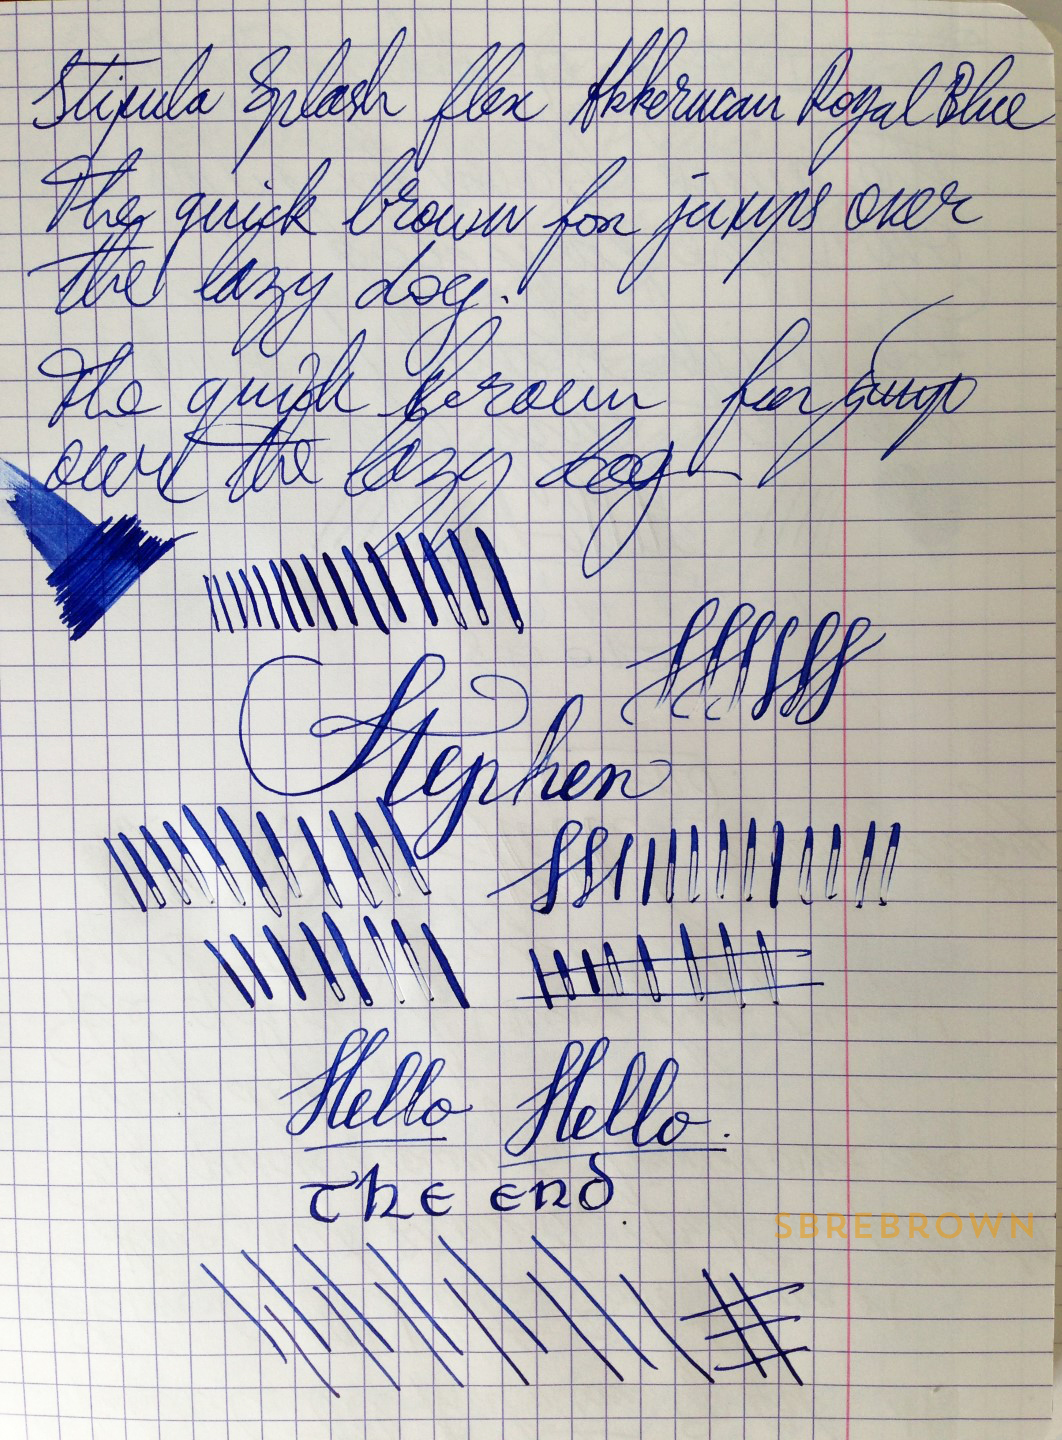 Stipula Splash flex Akkerman Royal Blue
The quick brown fox jumps over
the lazy dog.
The quick brown fox jump
over the lazy dog
Stephen
Hello Hello.
The end.
SBREBROWN